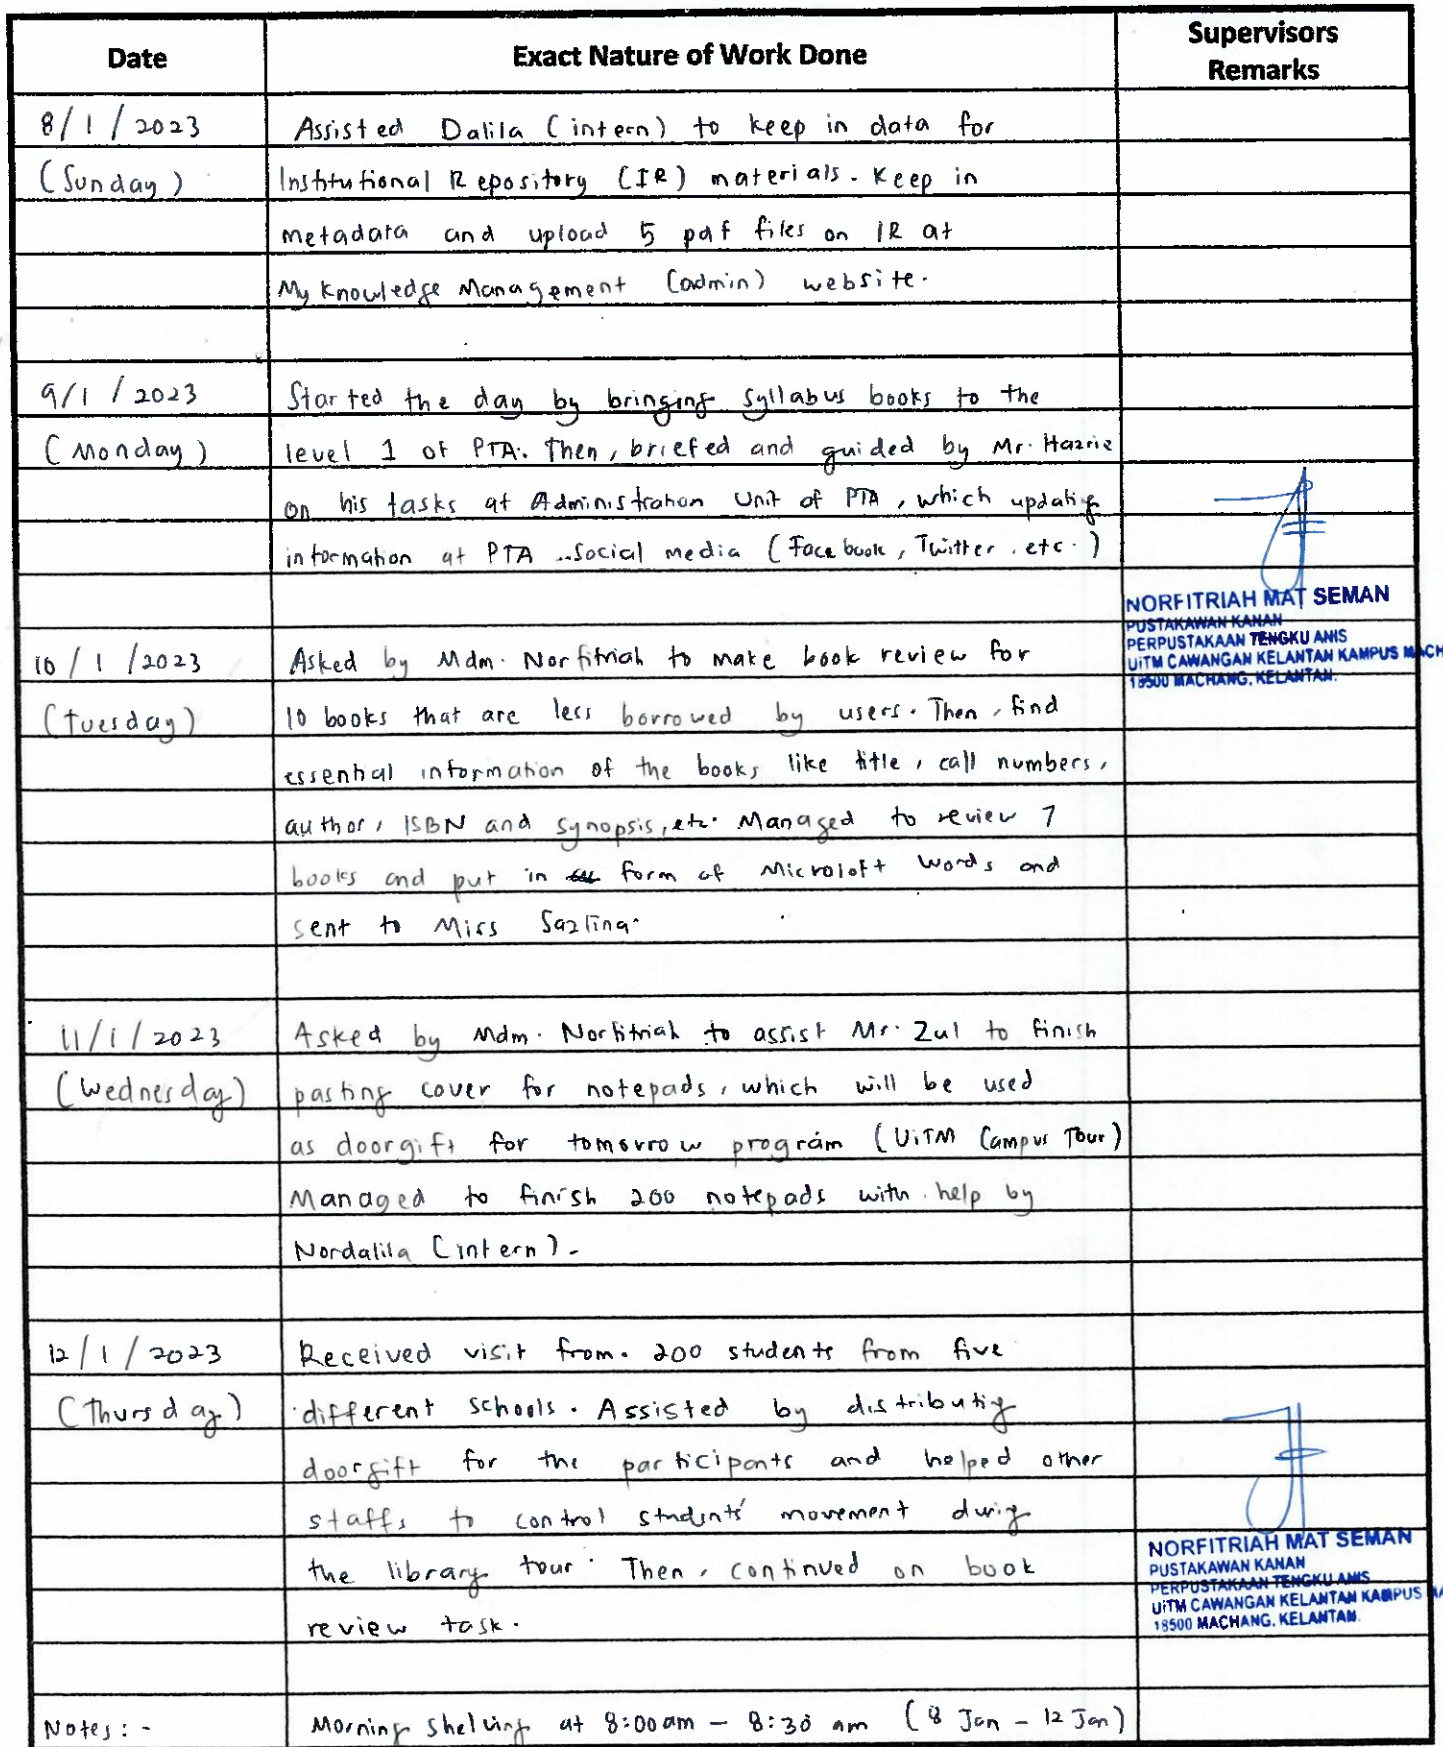 Date Exact Nature of Work Done Supervisors
Remarks
8/1/2023 Assisted Dalila (intern) to keep in data for
(Sunday) Institutional Repository (IR) materials. Keep in
metadata and upload 5 pdf files on IR at
My Knowledge Management (admin) website.
9/1/2023 Started the day by bringing syllabus books to the
(Monday) level 1 of PTA. Then, briefed and guided by Mr. Hazrie
on his tasks at Administration Unit of PTA, which updating
information at PTA social media (Facebook, Twitter. etc.)
NORFITRIAH MAT SEMAN
PUSTAKAWAN KANAN
PERPUSTAKAAN TENGKU ANIS
UiTM CAWANGAN KELANTAN KAMPUS MACH
18500 MACHANG, KELANTAN.
10/1/2023 Asked by Mdm. Norfitriah to make book review for
(Tuesday) 10 books that are less borrowed by users. Then, find
essential information of the books like title, call numbers,
author, ISBN and synopsis, etc. Managed to review 7
books and put in form of Microsoft Words and
sent to Miss Sazlina.
11/1/2023 Asked by Mdm. Norfitriah to assist Mr. Zul to finish
(Wednesday) pasting cover for notepads, which will be used
as doorgift for tomorrow program (UiTM Campus Tour)
Managed to finish 200 notepads with help by
Nordalila (intern).
12/1/2023 Received visit from. 200 students from five
(Thursday) different schools. Assisted by distributing
doorgift for the participants and helped other
staffs to control students' movement during
the library tour. Then, continued on book
review task.
NORFITRIAH MAT SEMAN
PUSTAKAWAN KANAN
PERPUSTAKAAN TENGKU ANIS
UiTM CAWANGAN KELANTAN KAMPUS MA
18500 MACHANG, KELANTAN.
Notes: - Morning shelving at 8:00 am - 8:30 am (8 Jan - 12 Jan)